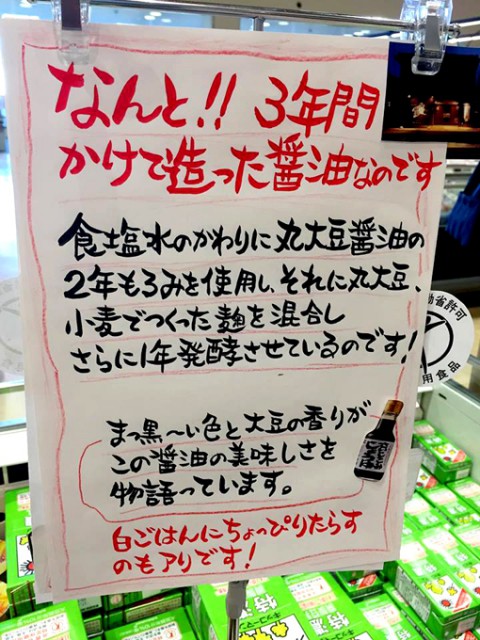 なんと!! 3年間
かけて造った醤油なのです
食塩水のかわりに丸大豆醤油の
2年もろみを使用し、それに丸大豆、
小麦でつくった麹を混合し
さらに1年発酵させているのです!
まっ黒〜い色と大豆の香りが
この醤油の美味しさを
物語っています。
白ごはんにちょっぴりたらす
のもアリです!
省許可
用食品
キッコーマン
特選